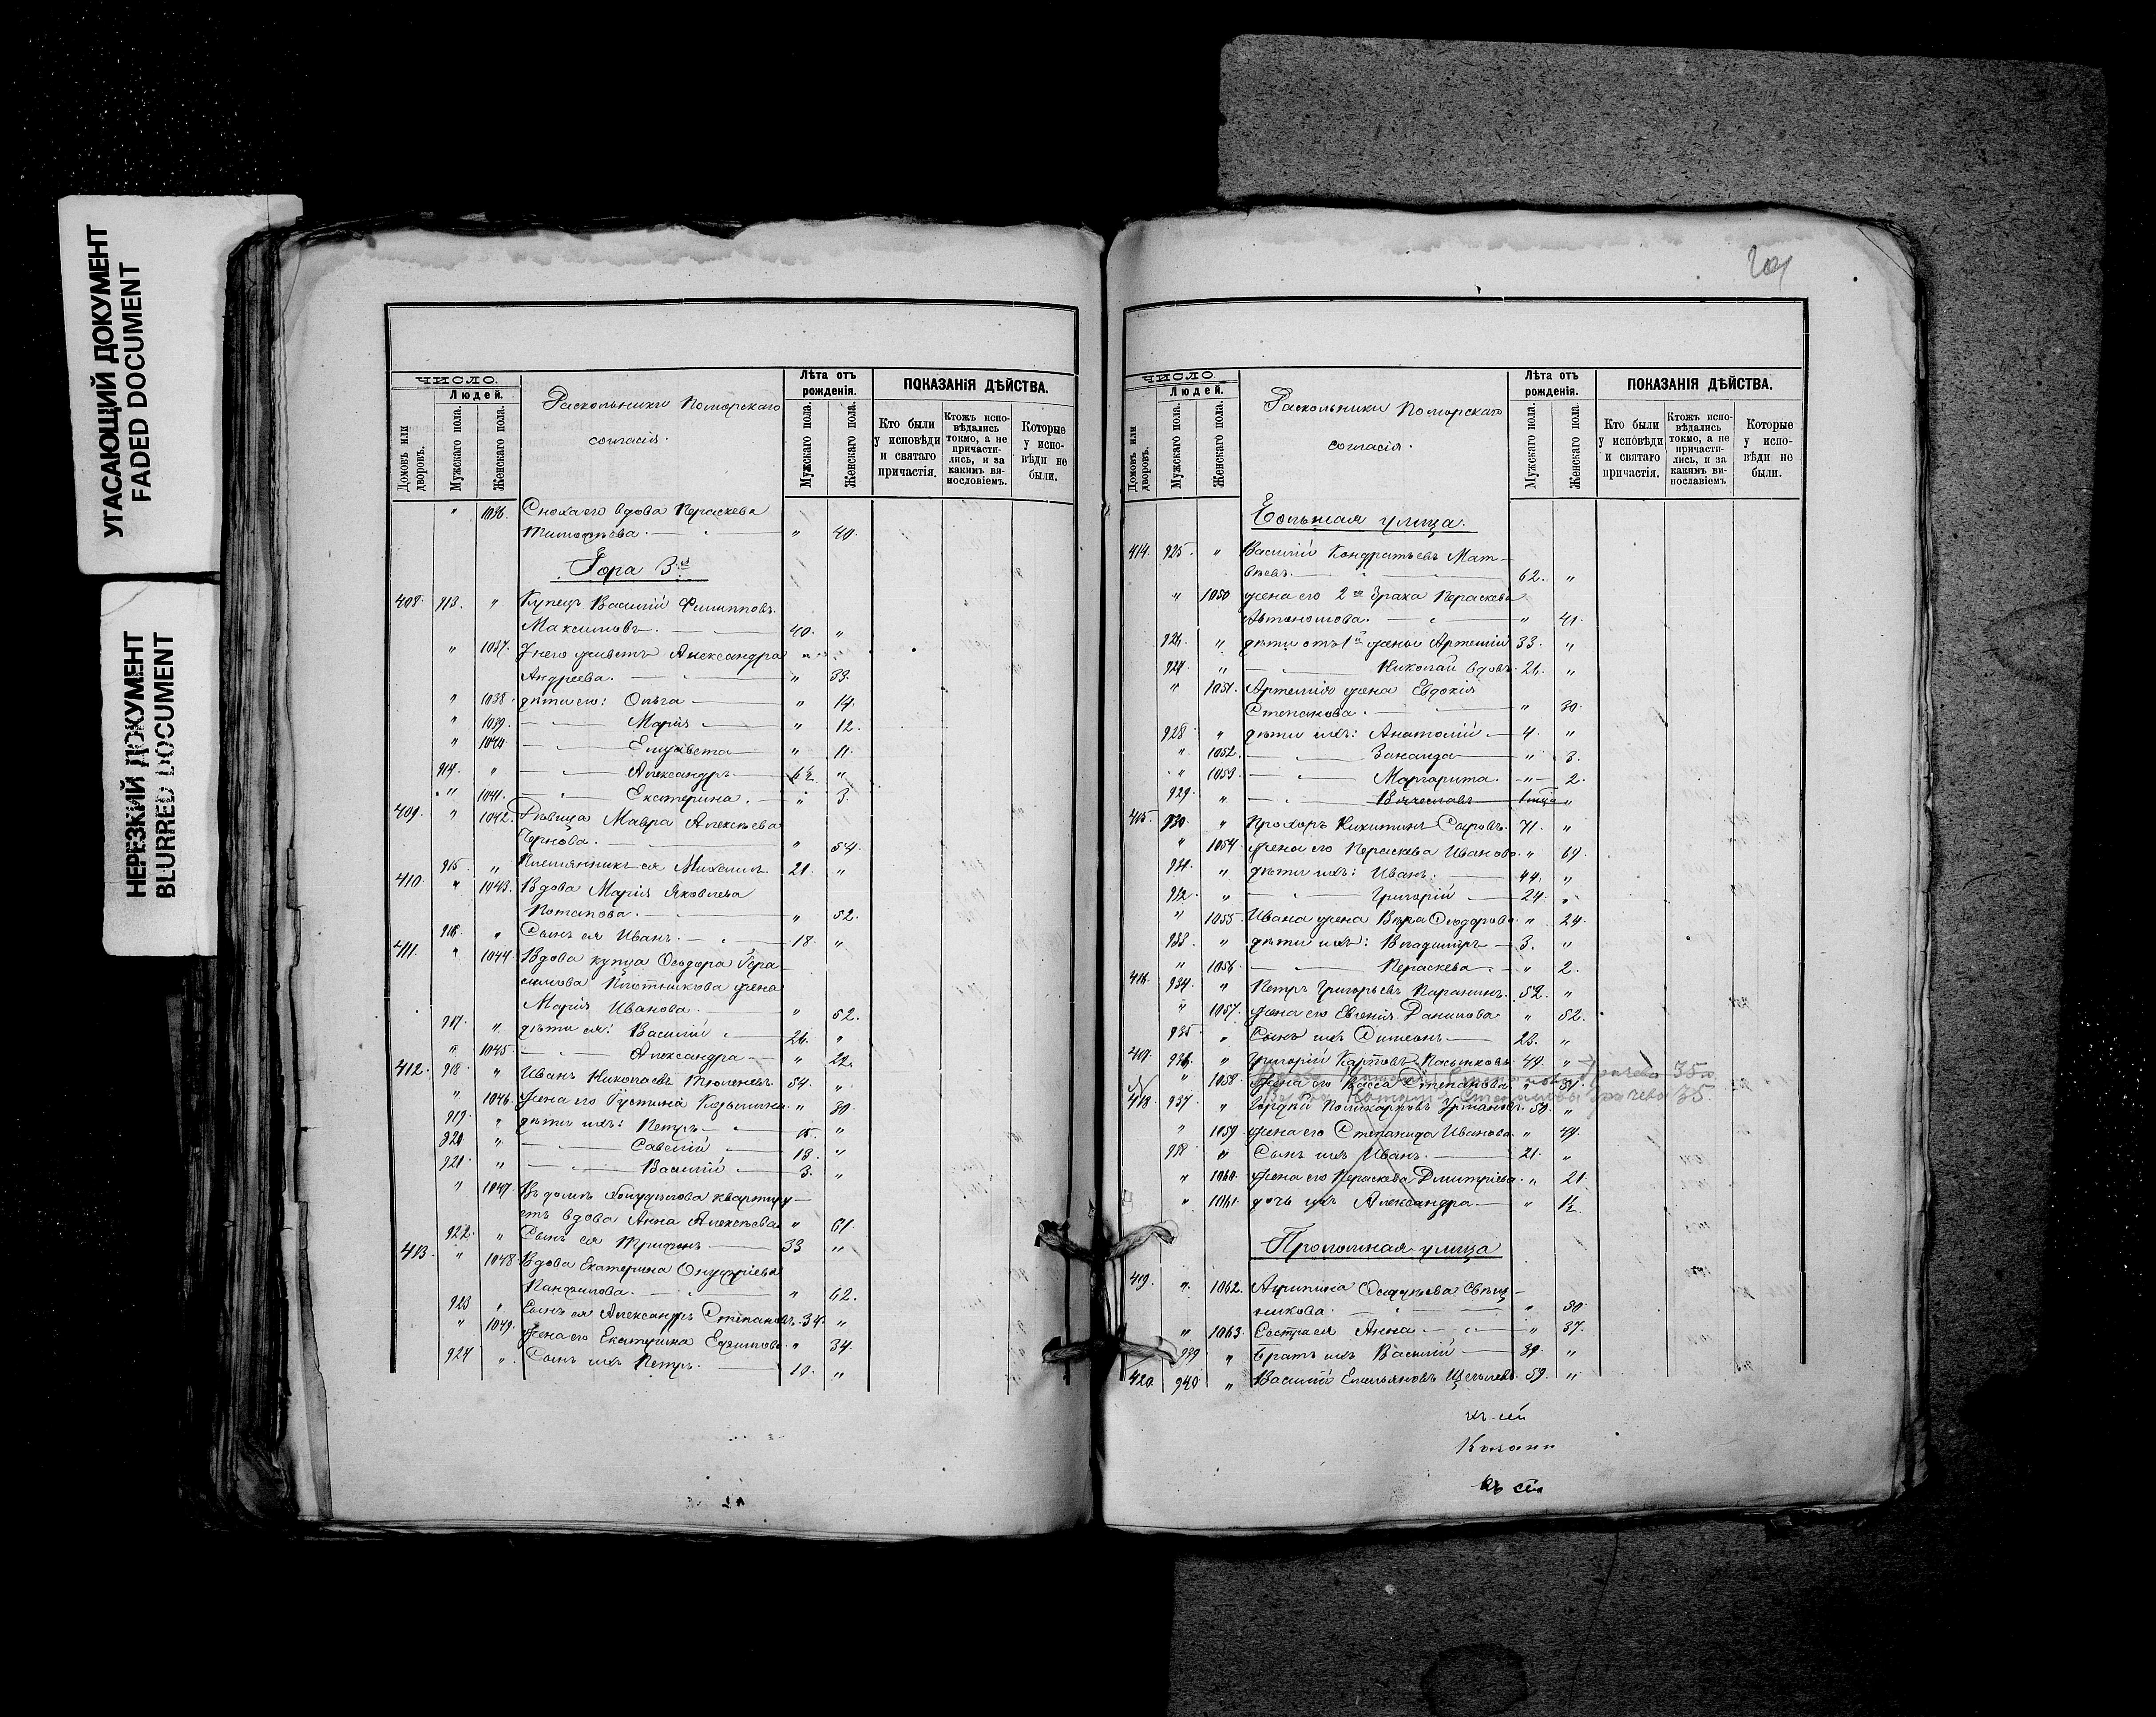 УГАСАЮЩИЙ ДОКУМЕНТ
FADED DOCUMENT
НЕРЕЗКИЙ ДОКУМЕНТ
BLURRED DOCUMENT
ЧИСЛО.
Людей.
Домовъ или дворовъ.
Мужскаго пола.
Женскаго пола.
Раскольники Поморскаго
согласія.
Лѣта отъ
рожденія.
Мужскаго пола.
Женскаго пола.
ПОКАЗАНІЯ ДѢЙСТВА.
Кто были
у исповѣди
и святаго
причастія.
Ктожъ испо-
вѣдались
токмо, а не
причасти-
лись, и за
какимъ ви-
нословіемъ.
Которые
у испо-
вѣди не
были.
" 1036. Сноха его вдова Параскева
Тимофѣева. " 40.
Гора 3я
408. 913. " Купецъ Василій Филипповъ
Максимовъ. 40. "
" 1037. У него живетъ Александра
Андреева. " 33.
" 1038. дѣти его: Ольга " 14.
" 1039. Марія " 12.
" 1040. Елизавета " 11.
914. " Александръ 6½ "
" 1041. Екатерина. " 3.
409. " 1042. Дѣвица Мавра Алексѣева
Чернова. " 54.
915. " Племянникъ ея Михаилъ 21. "
410. " 1043. Вдова Марія Яковлева
Потапова. " 52.
916. " Сынъ ея Иванъ. 18. "
411. " 1044. Вдова купца Ѳеодора Гера-
симова Плотникова жена
Марія Иванова. " 52.
917. " дѣти ея: Василій 26. "
" 1045. Александра " 22.
412. 918. " Иванъ Николаевъ Тюленевъ. 54. "
" 1046. Жена его Устинья " 30.
919. " дѣти ихъ: Петръ 15. "
920. " Савелій 13. "
921. " Василій 3. "
" 1047. Въ домѣ квартиру-
етъ вдова Анна Алексѣева " 61.
922. " Сынъ ея Трифонъ 33 "
413. " 1048 Вдова Екатерина Онуфріева
Панфилова. " 62.
923 " Сынъ ея Александръ Степановъ. 34. "
" 1049. Жена его Екатерина Ефимова. " 34.
924 " Сынъ ихъ Петръ. 10. "
ЧИСЛО
Людей.
Домовъ или дворовъ.
Мужскаго пола.
Женскаго пола.
Раскольники Поморскаго
согласія.
Лѣта отъ
рожденія.
Мужскаго пола.
Женскаго пола.
ПОКАЗАНІЯ ДѢЙСТВА.
Кто были
у исповѣди
и святаго
причастія.
Ктожъ испо-
вѣдались
токмо, а не
причасти-
лись, и за
какимъ ви-
нославіемъ
Которые
у испо-
вѣди не
были.
Большая улица.
414. 925. " Василій Кондратьевъ Мат-
вѣевъ. 62. "
" 1050 жена его 2го брака Параскева
Автономова. " 41.
926. " дѣти отъ 1й жены Артемій 33. "
927. " Николай вдовъ. 26. "
" 1051. Артемія жена Евдокія
Степанова. " 30.
928. " дѣти ихъ: Анатолій 4. "
" 1052. Зинаида " 3.
" 1053. Маргарита. " 2.
929. " Вячеславъ 1 мца "
415. 930. " Прохоръ Никитинъ Сыровъ. 71. "
" 1054. Жена его Параскева Иванова. " 69.
931. " дѣти ихъ: Иванъ. 44. "
932. " Григорій 24. "
" 1055. Ивана жена Вѣра Ѳеодорова. " 24.
933. " дѣти ихъ: Владиміръ 3. "
" 1056. Параскева. " 2.
416. 934. " Петръ Григорьевъ 52. "
" 1057. Жена его Евгенія Данилова " 52.
935 " Сынъ ихъ Симеонъ 23. "
417. 936. " Григорій Карповъ 49. "
" 1058. Жена его Васса Степанова " 31.
418. 937. " Поликарповъ 50. "
" 1059. Жена его Степанида Иванова " 49.
938 " Сынъ ихъ Иванъ. 21. "
" 1060. Жена его Параскева Дмитріева. " 21.
" 1061. дочь ихъ Александра " ½.
Проломная улица
419. " 1062. Агрипина "
никова. " 50.
" 1063. Сестра ея Анна " 37.
939 " Братъ ихъ Василій 39. "
420. 940 " Василій Емельяновъ 59. "